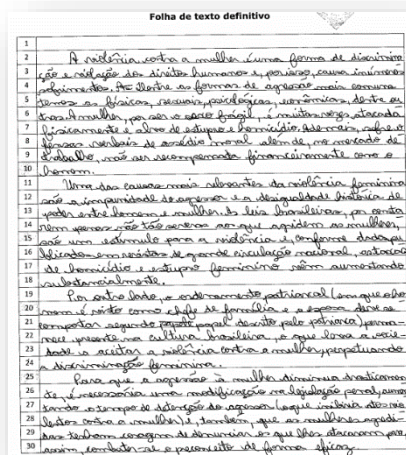 Folha de texto definitivo
1
2 A violência contra a mulher é uma forma de discrimina
3 ção e violação dos direitos humanos e, por isso, causa inúmeros
4 sofrimentos. Dentre as formas de agressão mais comuns
5 temos as físicas, sexuais, psicológicas, econômicas, dentre ou
6 tras. A mulher, por ser o sexo frágil, é muitas vezes atacada
7 fisicamente e alvo de estupro e homicídio. Ademais, sofre o
8 verbais de assédio moral além de, no mercado de
9 trabalho, não ser recompensada financeiramente como o
10 homem.
11 Uma das causas mais relevantes da violência feminina
12 são a impunidade do agressor e a desigualdade histórica de
13 poder entre homem e mulher. As leis brasileiras, por conta
14 rem penas não tão severas aos que agridem as mulheres,
15 são um estímulo para a violência e, conforme dados pu
16 blicados em revistas de grande circulação nacional, estatísticas
17 de homicídio e estupro feminino vêm aumentando
18 substancialmente.
19 Por outro lado, o ordenamento patriarcal (em que o ho
20 mem é visto como chefe de família e a esposa deve se
21 comportar segundo papel descrito pelo patriarca) perma
22 nece presente na cultura brasileira, o que leva a socie
23 dade a aceitar a violência contra a mulher, perpetuando
24 a discriminação feminina.
25 Para que a agressão à mulher diminua drasticamen
26 te, é necessária uma modificação na legislação penal, aumen
27 tando o tempo de detenção do agressor (o que inibiria atos vio
28 lentos contra a mulher) e, também, que as mulheres agredi
29 das tenham coragem de denunciar os que lhes atacaram para,
30 assim, combater-se o preconceito de forma eficaz.